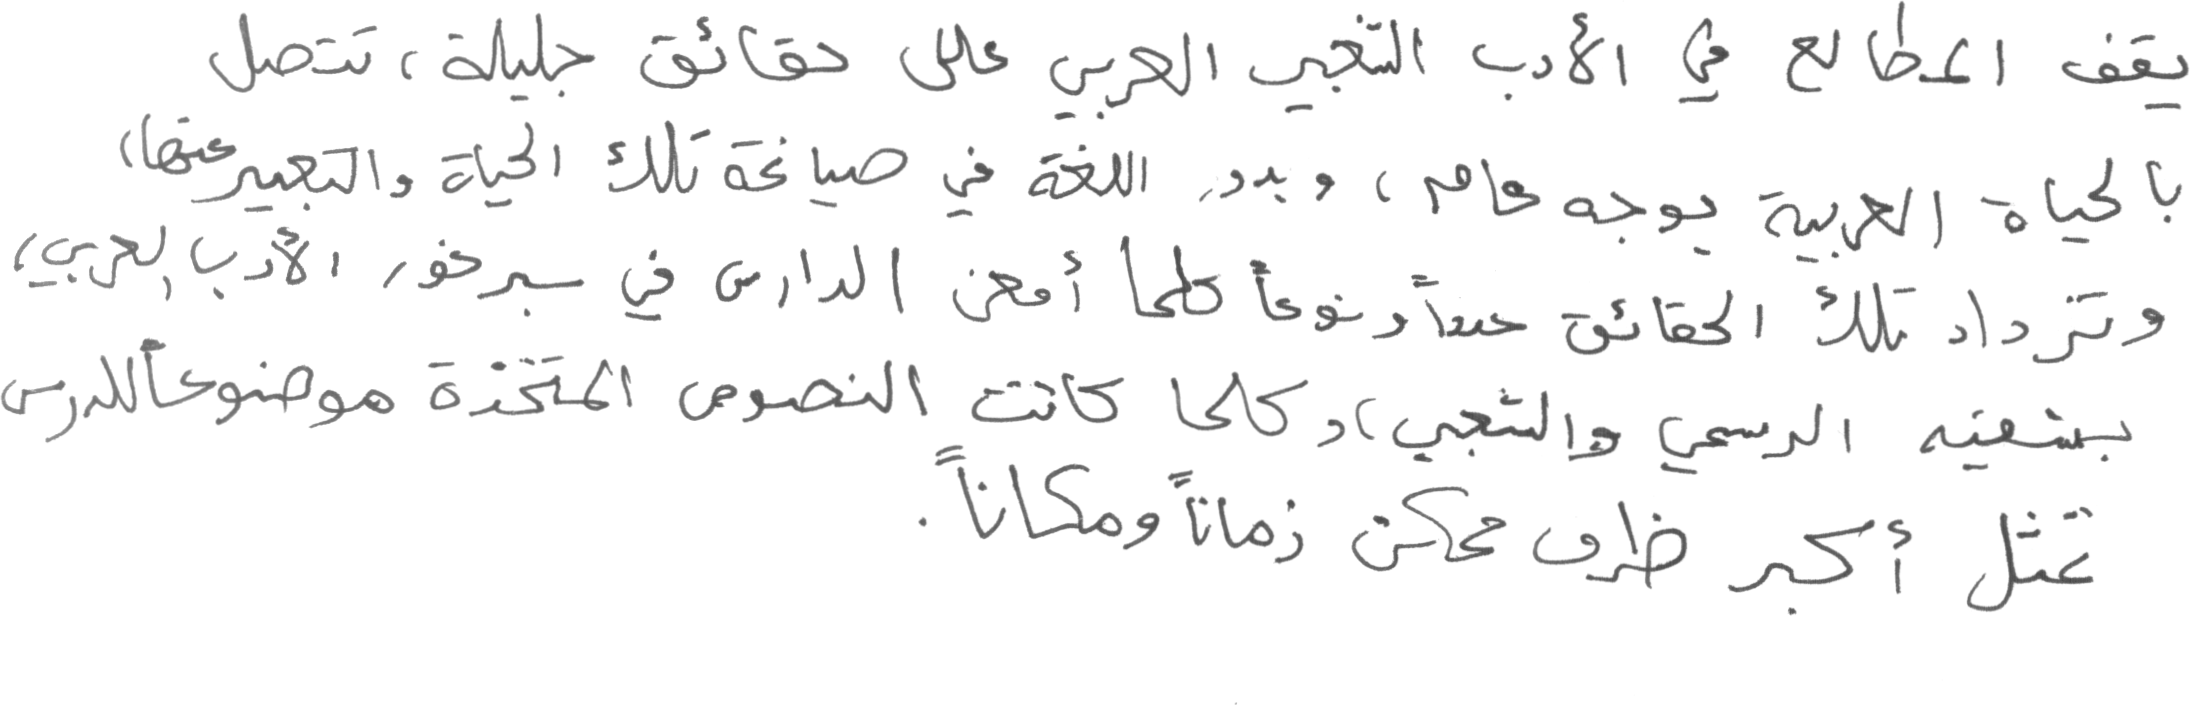 يقف المطالع في الأدب الشعبي العربي على حقائق جليلة، تتصل
بالحياة العربية بوجه عام، وبدور اللغة في صياغة تلك الحياة والتعبير عنها،
وتزداد تلك الحقائق عمقاً ونوعاً كلما أمعن الدارس في سبر غور الأدب العربي،
بشقيه الرسمي والشعبي، وكلما كانت النصوص المتخذة موضوعاً للدرس
تمثل أكبر ظرف ممكن زماناً ومكاناً.